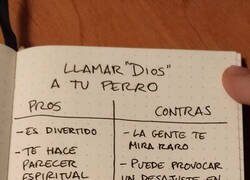 LLAMAR "DIOS"
A TU PERRO
PROS
- ES DIVERTIDO
- TE HACE
PARECER
ESPIRITUAL
CONTRAS
- LA GENTE TE
MIRA RARO
- PUEDE PROVOCAR
UN DESAJUSTE EN